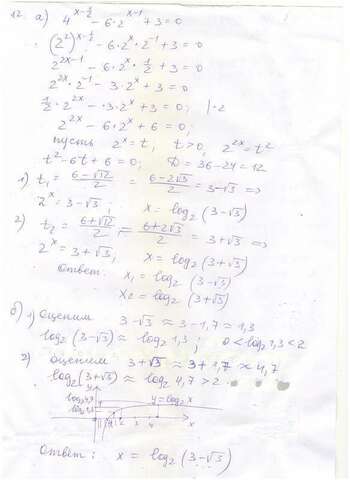 12. а) 4^{x-1/2} - 6·2^{x-1} + 3 = 0
(2²)^{x-1/2} - 6·2^x·2^{-1} + 3 = 0
2^{2x-1} - 6·2^x·1/2 + 3 = 0
2^{2x}·2^{-1} - 3·2^x + 3 = 0
1/2·2^{2x} - 3·2^x + 3 = 0; |·2
2^{2x} - 6·2^x + 6 = 0;
пусть 2^x = t; t>0, 2^{2x} = t²
t² - 6t + 6 = 0; D = 36-24 = 12
1) t₁ = (6-√12)/2 = (6-2√3)/2 = 3-√3 =>
2^x = 3-√3; x = log₂(3-√3)
2) t₂ = (6+√12)/2 = (6+2√3)/2 = 3+√3 =>
2^x = 3+√3, x = log₂(3+√3)
Ответ: x₁ = log₂(3-√3)
x₂ = log₂(3+√3)
б) 1) Оценим 3-√3 ≈ 3-1,7 ≈ 1,3
log₂(3-√3) ≈ log₂1,3; 0 < log₂1,3 < 2
2) Оценим 3+√3 ≈ 3+1,7 ≈ 4,7
log₂(3+√3) ≈ log₂4,7 > 2
log₂4,7 y = log₂x
log₂1,3
1 2 3 4 x
Ответ: x = log₂(3-√3)